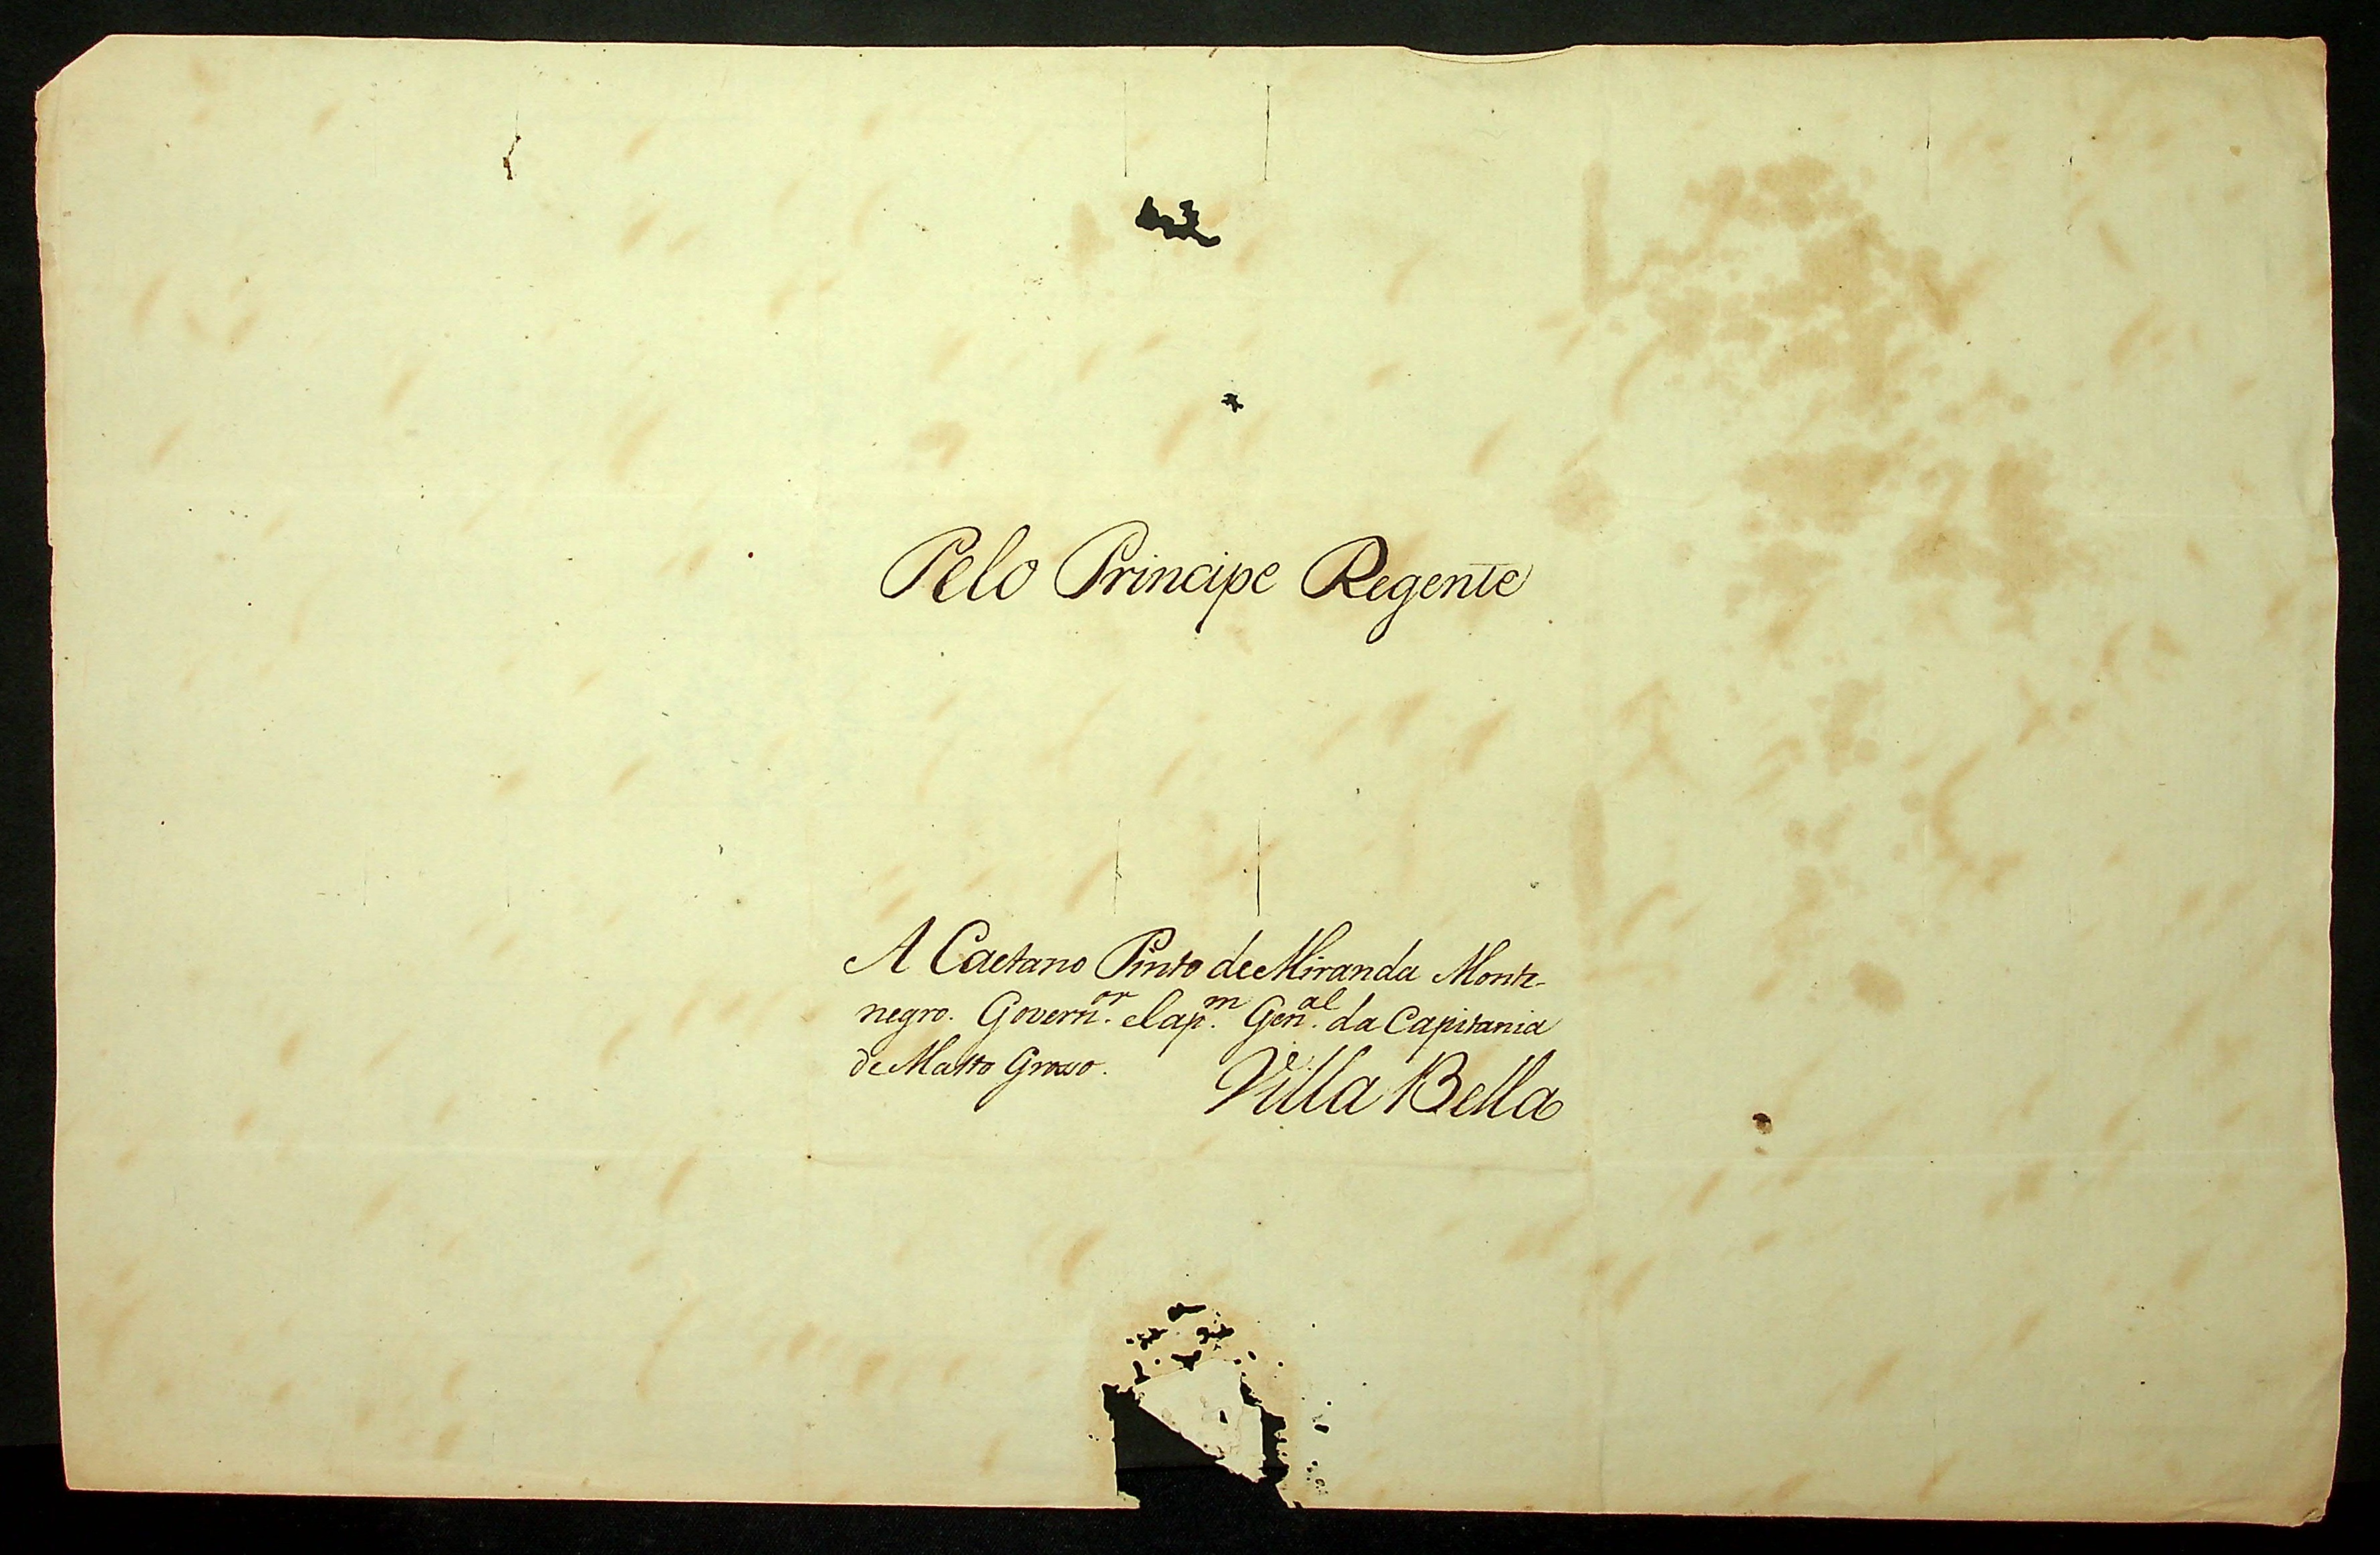 Pelo Principe Regente
A Caetano Pinto de Miranda Monte-
negro. Govern.or e Cap.m Gen.al da Capitania
de Matto Grosso.
Villa Bella